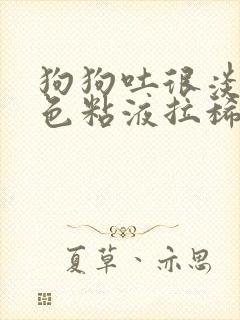 狗狗吐很淡
色粘液拉稀
夏草、亦思